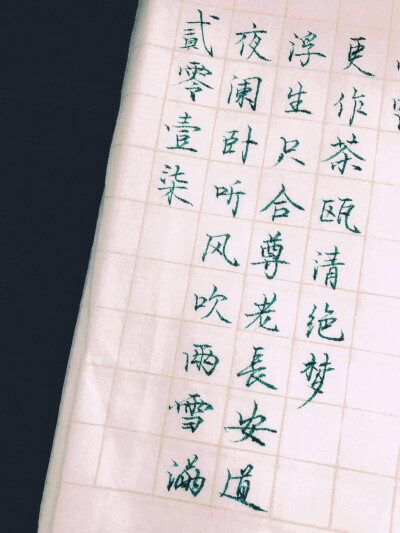 更作茶瓯清绝梦
浮生只合尊老長安道
夜阑卧听风吹雨雪满
貳零壹柒